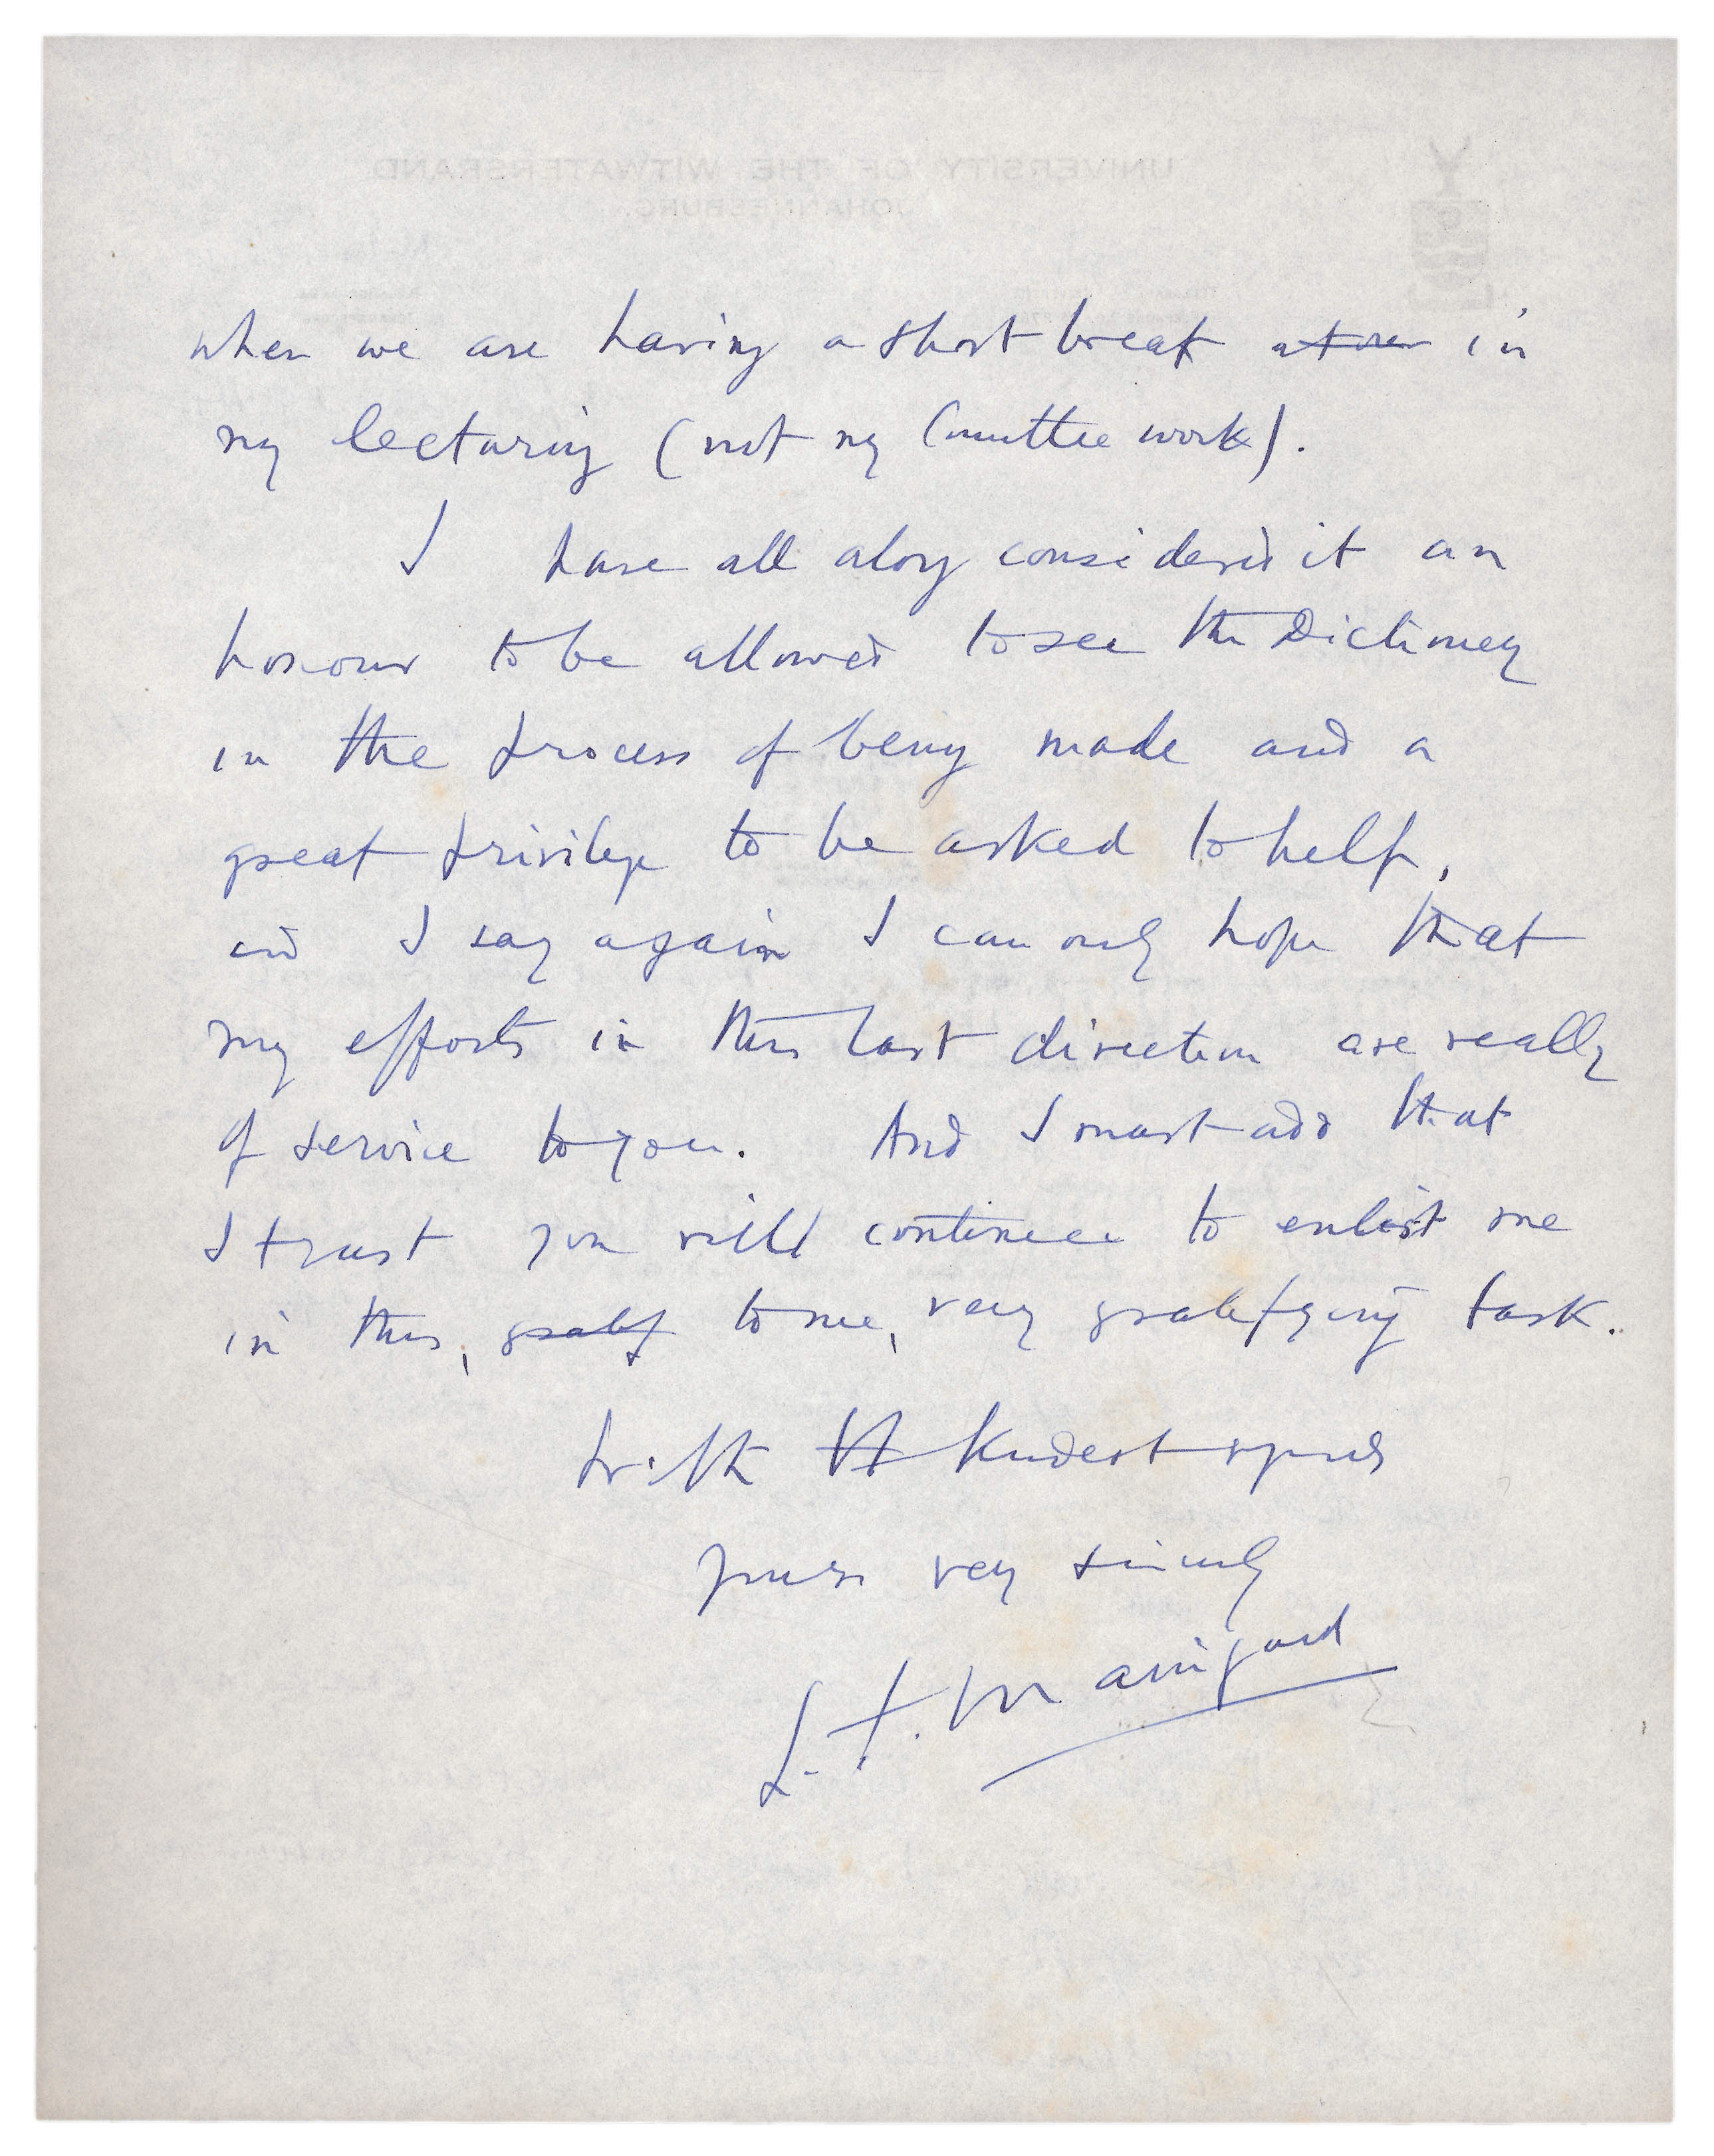 UNIVERSITY OF THE WITWATERSRAND
JOHANNESBURG.
when we are having a short break in
my lecturing (not my Committee work).
I have all along considered it an
honour to be allowed to see the Dictionary
in the process of being made and a
great privilege to be asked to help,
and I say again I can only hope that
my efforts in this last direction are really
of service to you. And I must add that
I trust you will continue to enlist me
in this, gratif to me, very gratifying task.
With kindest regards
yours very sincerely
L. F. Maingard